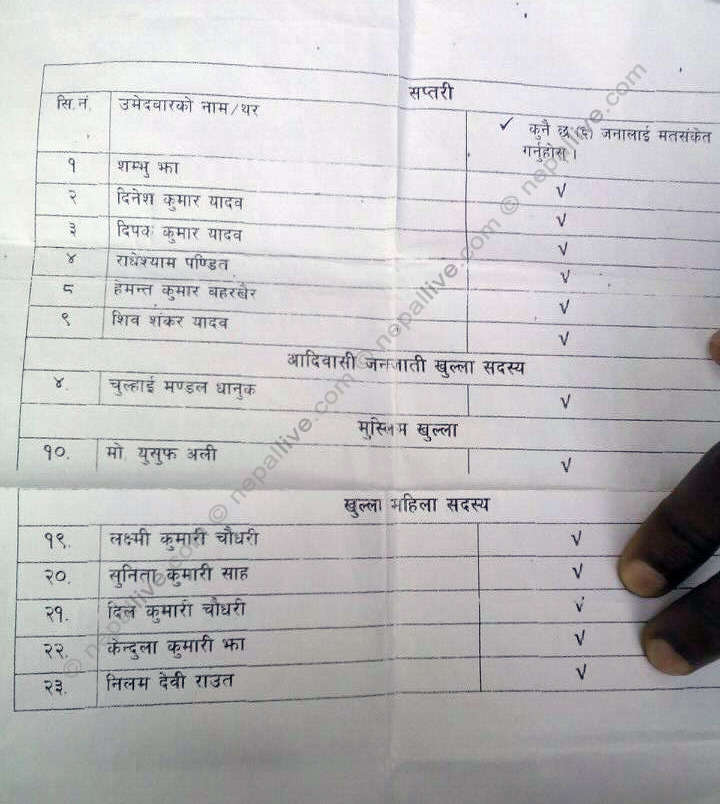 सप्तरी
सि.नं. उमेदवारको नाम/थर ✓ कुनै छ (६) जनालाई मतसंकेत
गर्नुहोस् ।
१ शम्भु झा
२ दिनेश कुमार यादव √
३ दिपक कुमार यादव √
४ राधेश्याम पण्डित √
८ हेमन्त कुमार बहरखेर √
९ शिव शंकर यादव √
√
आदिवासी जनजाती खुल्ला सदस्य
४. चुल्हाई मण्डल धानुक √
मुस्लिम खुल्ला
१०. मो. युसुफ अली √
खुल्ला महिला सदस्य
१९. लक्ष्मी कुमारी चौधरी √
२०. सुनिता कुमारी साह √
२१. दिल कुमारी चौधरी √
२२. केन्दुला कुमारी झा √
२३. निलम देवी राउत √
© nepallive.com © nepallive.com © nepallive.com © nepallive.com